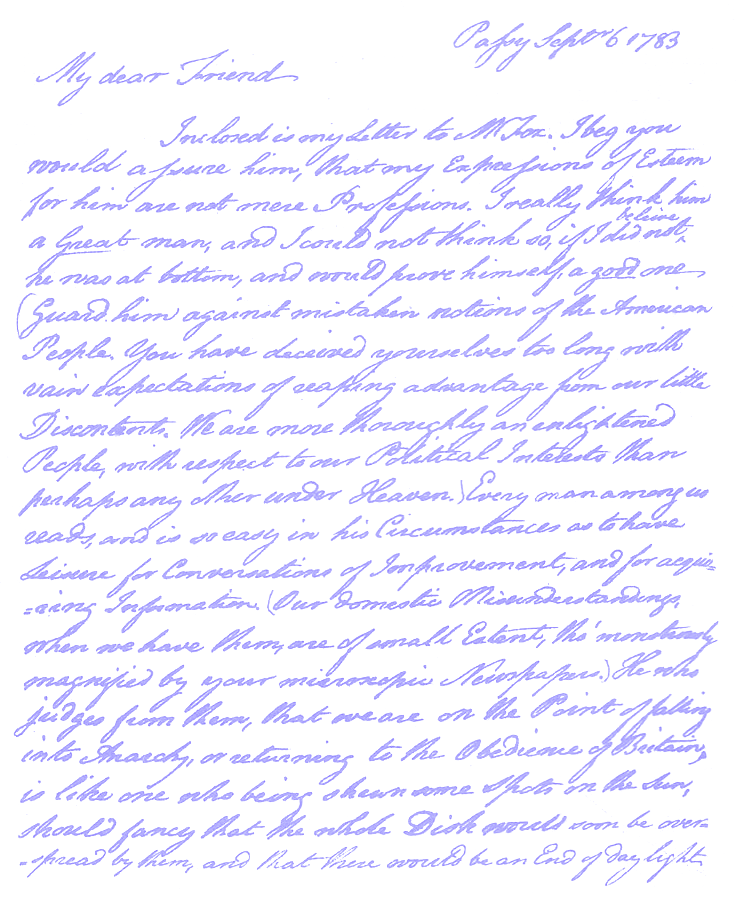 Passy Septr 6 1783
My dear Friend
Inclosed is my Letter to Mr Fox. I beg you
would assure him, that my Expressions of Esteem
for him are not mere Professions. I really think him
a Great man, and I could not think so, if I did not believe
he was at bottom, and would prove himself, a good one
(Guard him against mistaken notions of the American
People. You have deceived yourselves too long with
vain expectations of reaping advantage from our little
Discontents. We are more thoroughly an enlightened
People, with respect to our Political Interests than
perhaps any other under Heaven.) Every man among us
reads, and is so easy in his Circumstances as to have
Leisure for Conversations of Improvement, and for acqui=
=ring Information. (Our domestic Misunderstandings,
when we have them, are of small Extent, tho' monstrously
magnified by your microscopic Newspapers.) He who
judges from them, that we are on the Point of falling
into Anarchy, or returning to the Obedience of Britain,
is like one who being shewn some Spots on the Sun,
should fancy that the whole Disk would soon be over=
=spread by them, and that there would be an End of Daylight.